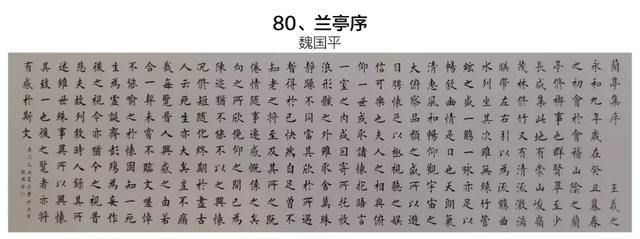 80、兰亭序
魏国平
蘭亭集序 王羲之
永和九年歲在癸丑暮春
之初會於會稽山陰之蘭
亭脩稧事也羣賢畢至少
長咸集此地有崇山峻嶺
茂林修竹又有清流激湍
暎帶左右引以為流觴曲
水列坐其次雖無絲竹管
絃之盛一觴一詠亦足以
暢敘幽情是日也天朗氣
清惠風和暢仰觀宇宙之
大俯察品類之盛所以遊
目騁懷足以極視聽之娛
信可樂也夫人之相與俯
仰一世或取諸懷抱悟言
一室之內或因寄所托放
浪形骸之外雖趣舍萬殊
靜躁不同當其欣於所遇
暫得於己快然自足曾不
知老之將至及其所之既
倦情隨事遷感慨係之矣
向之所欣俛仰之間已為
陳迹猶不能不以之興懷
況脩短隨化終期於盡古
人云死生亦大矣豈不痛
哉每覽昔人興感之由若
合一契未嘗不臨文嗟悼
不能喻之於懷固知一死
生為虛誕齊彭殤為妄作
後之視今亦猶今之視昔
悲夫故列敘時人錄其所
述雖世殊事異所以興懷
其致一也後之覽者亦將
有感於斯文